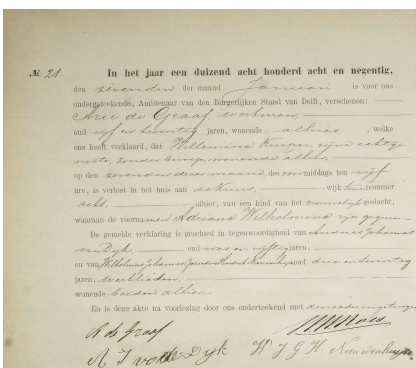 № 21.
In het jaar een duizend acht honderd acht en negentig,
den zevenden der maand Januari is voor ons
ondergeteekende, Ambtenaar van den Burgerlijken Stand van Delft, verschenen:
Arie de Graaf, werkman,
oud vijf en twintig jaren, wonende alhier, welke
ons heeft verklaard, dat Willemina Kuiper, zijne echtge-
noote, zonder beroep, wonende alhier
op den zevenden dezer maand, des voormiddags ten vijf
ure, is verlost in het huis aan de wijk twee nommer
acht, alhier, van een kind van het vrouwelijk geslacht,
waaraan de voornamen Adriana Wilhelmina zijn gegeven.
De gemelde verklaring is geschied in tegenwoordigheid van Andries Johannes
van Dijk, oud en vijftig jaren,
en van Wilhelmus Johannes oud drie en twintig
jaren, werklieden,
wonende beiden alhier.
En is deze akte na voorlezing door ons onderteekend met den vader en getuigen
A de Graaf
A J van Dijk W J G H Nieuwenhuijs